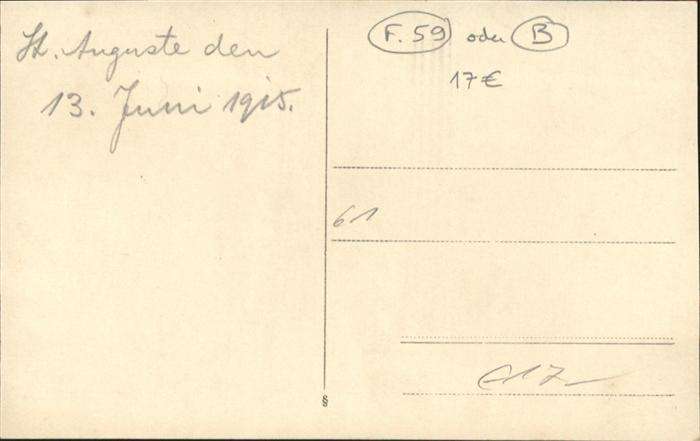 St. Auguste den
13. Juni 1915.
F. 59 oder B
17€
61
€17-
§